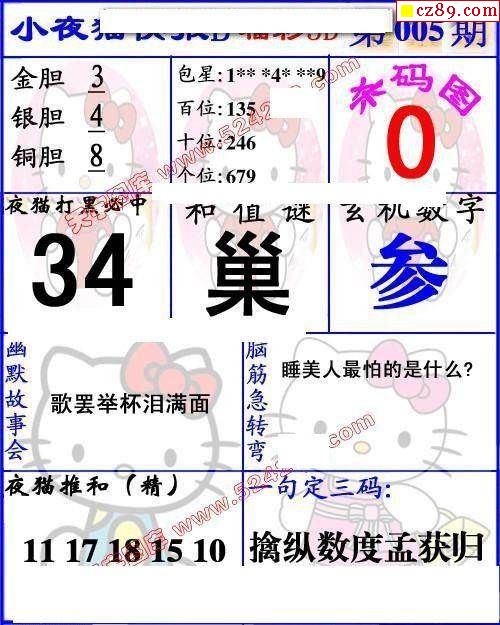 cz89.com
小夜猫快报D 福彩3D 第005期
金胆 3
银胆 4
铜胆 8
包星:1** *4* **9
百位:135
十位:246
个位:679
杀码图
0
夜猫打黑必中
34
和值谜
巢
玄机数字
参
幽默故事会
歌罢举杯泪满面
脑筋急转弯
睡美人最怕的是什么?
夜猫推和(精)
11 17 18 15 10
一句定三码:
擒纵数度孟获归